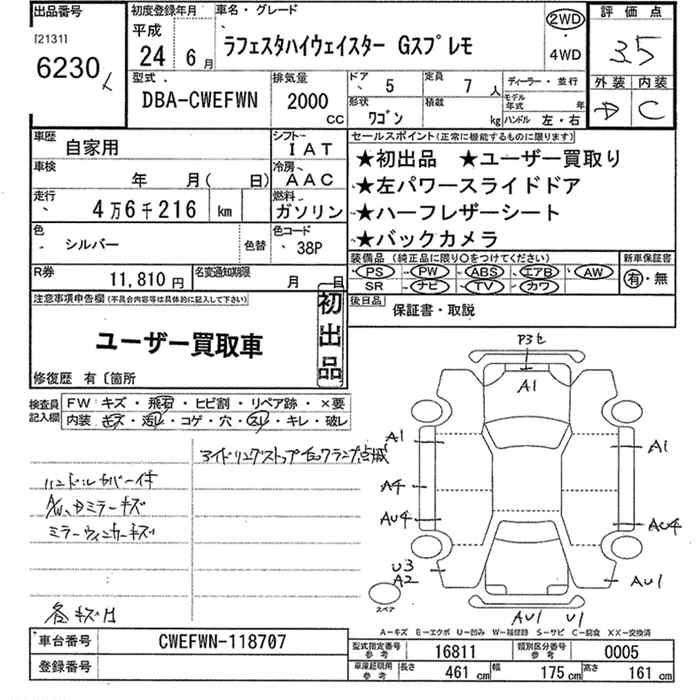 出品番号
[2131]
6230
初度登録年月
平成
24年 6月
車名・グレード
ラフェスタハイウェイスター Gスプレモ
2WD
・
4WD
評価点
3.5
外装 内装
D C
型式
DBA-CWEFWN
排気量
2000
CC
ドア 5
定員 7人
ディーラー・並行
形状 ワゴン
積載 kg
モデル年式 年
ハンドル 左・右
車歴 自家用
シフト IAT
車検 年 月( 日)
冷房 AAC
走行 4万6千216 km
燃料 ガソリン
色 シルバー
色替
色コード 38P
R券 11,810円
名変通知期限 月 日
セールスポイント(正常に機能するものに限ります)
★初出品 ★ユーザー買取り
★左パワースライドドア
★ハーフレザーシート
★バックカメラ
装備品(純正品に限り○をつけてください)
PS PW ABS エアB AW
SR ナビ TV カワ
新車保証書
有・無
後日品 保証書・取説
注意事項申告欄(不具合内容等は具体的に記入して下さい)
初出品
ユーザー買取車
修復歴 有〔箇所
検査員記入欄
FW キズ・飛石・ヒビ割・リペア跡・×要
内装 キズ・汚レ・コゲ・穴・スレ・キレ・破レ
ハンドルカバー付
ミラーウィンカーキズ
P3セ
A1
A1
A1
A4
AU4
AU4
U3
A2
AU1
AU1 U1
スペア
A－キズ E－エクボ U－凹み W－補修跡 S－サビ C－腐食 XX－交換済
車台番号 CWEFWN-118707
登録番号
型式指定番号 参考 16811
類別区分番号 参考 0005
車庫証明用 参考 長さ 461cm 幅 175cm 高さ 161cm